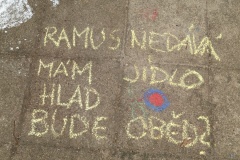 RAMUS NEDÁVÁ
MÁM JÍDLO
HLAD
BUDE OBĚD?